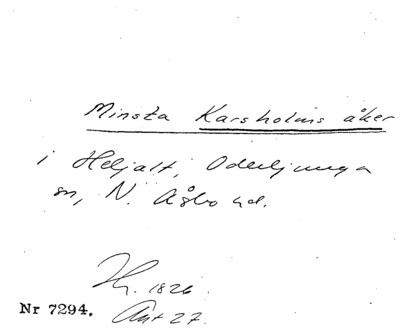 Minsta Karsholms åker
i Heljalt, Oderljunga
sn, N. Åsbo hd.
1826.
Nr 7294. Akt 27.